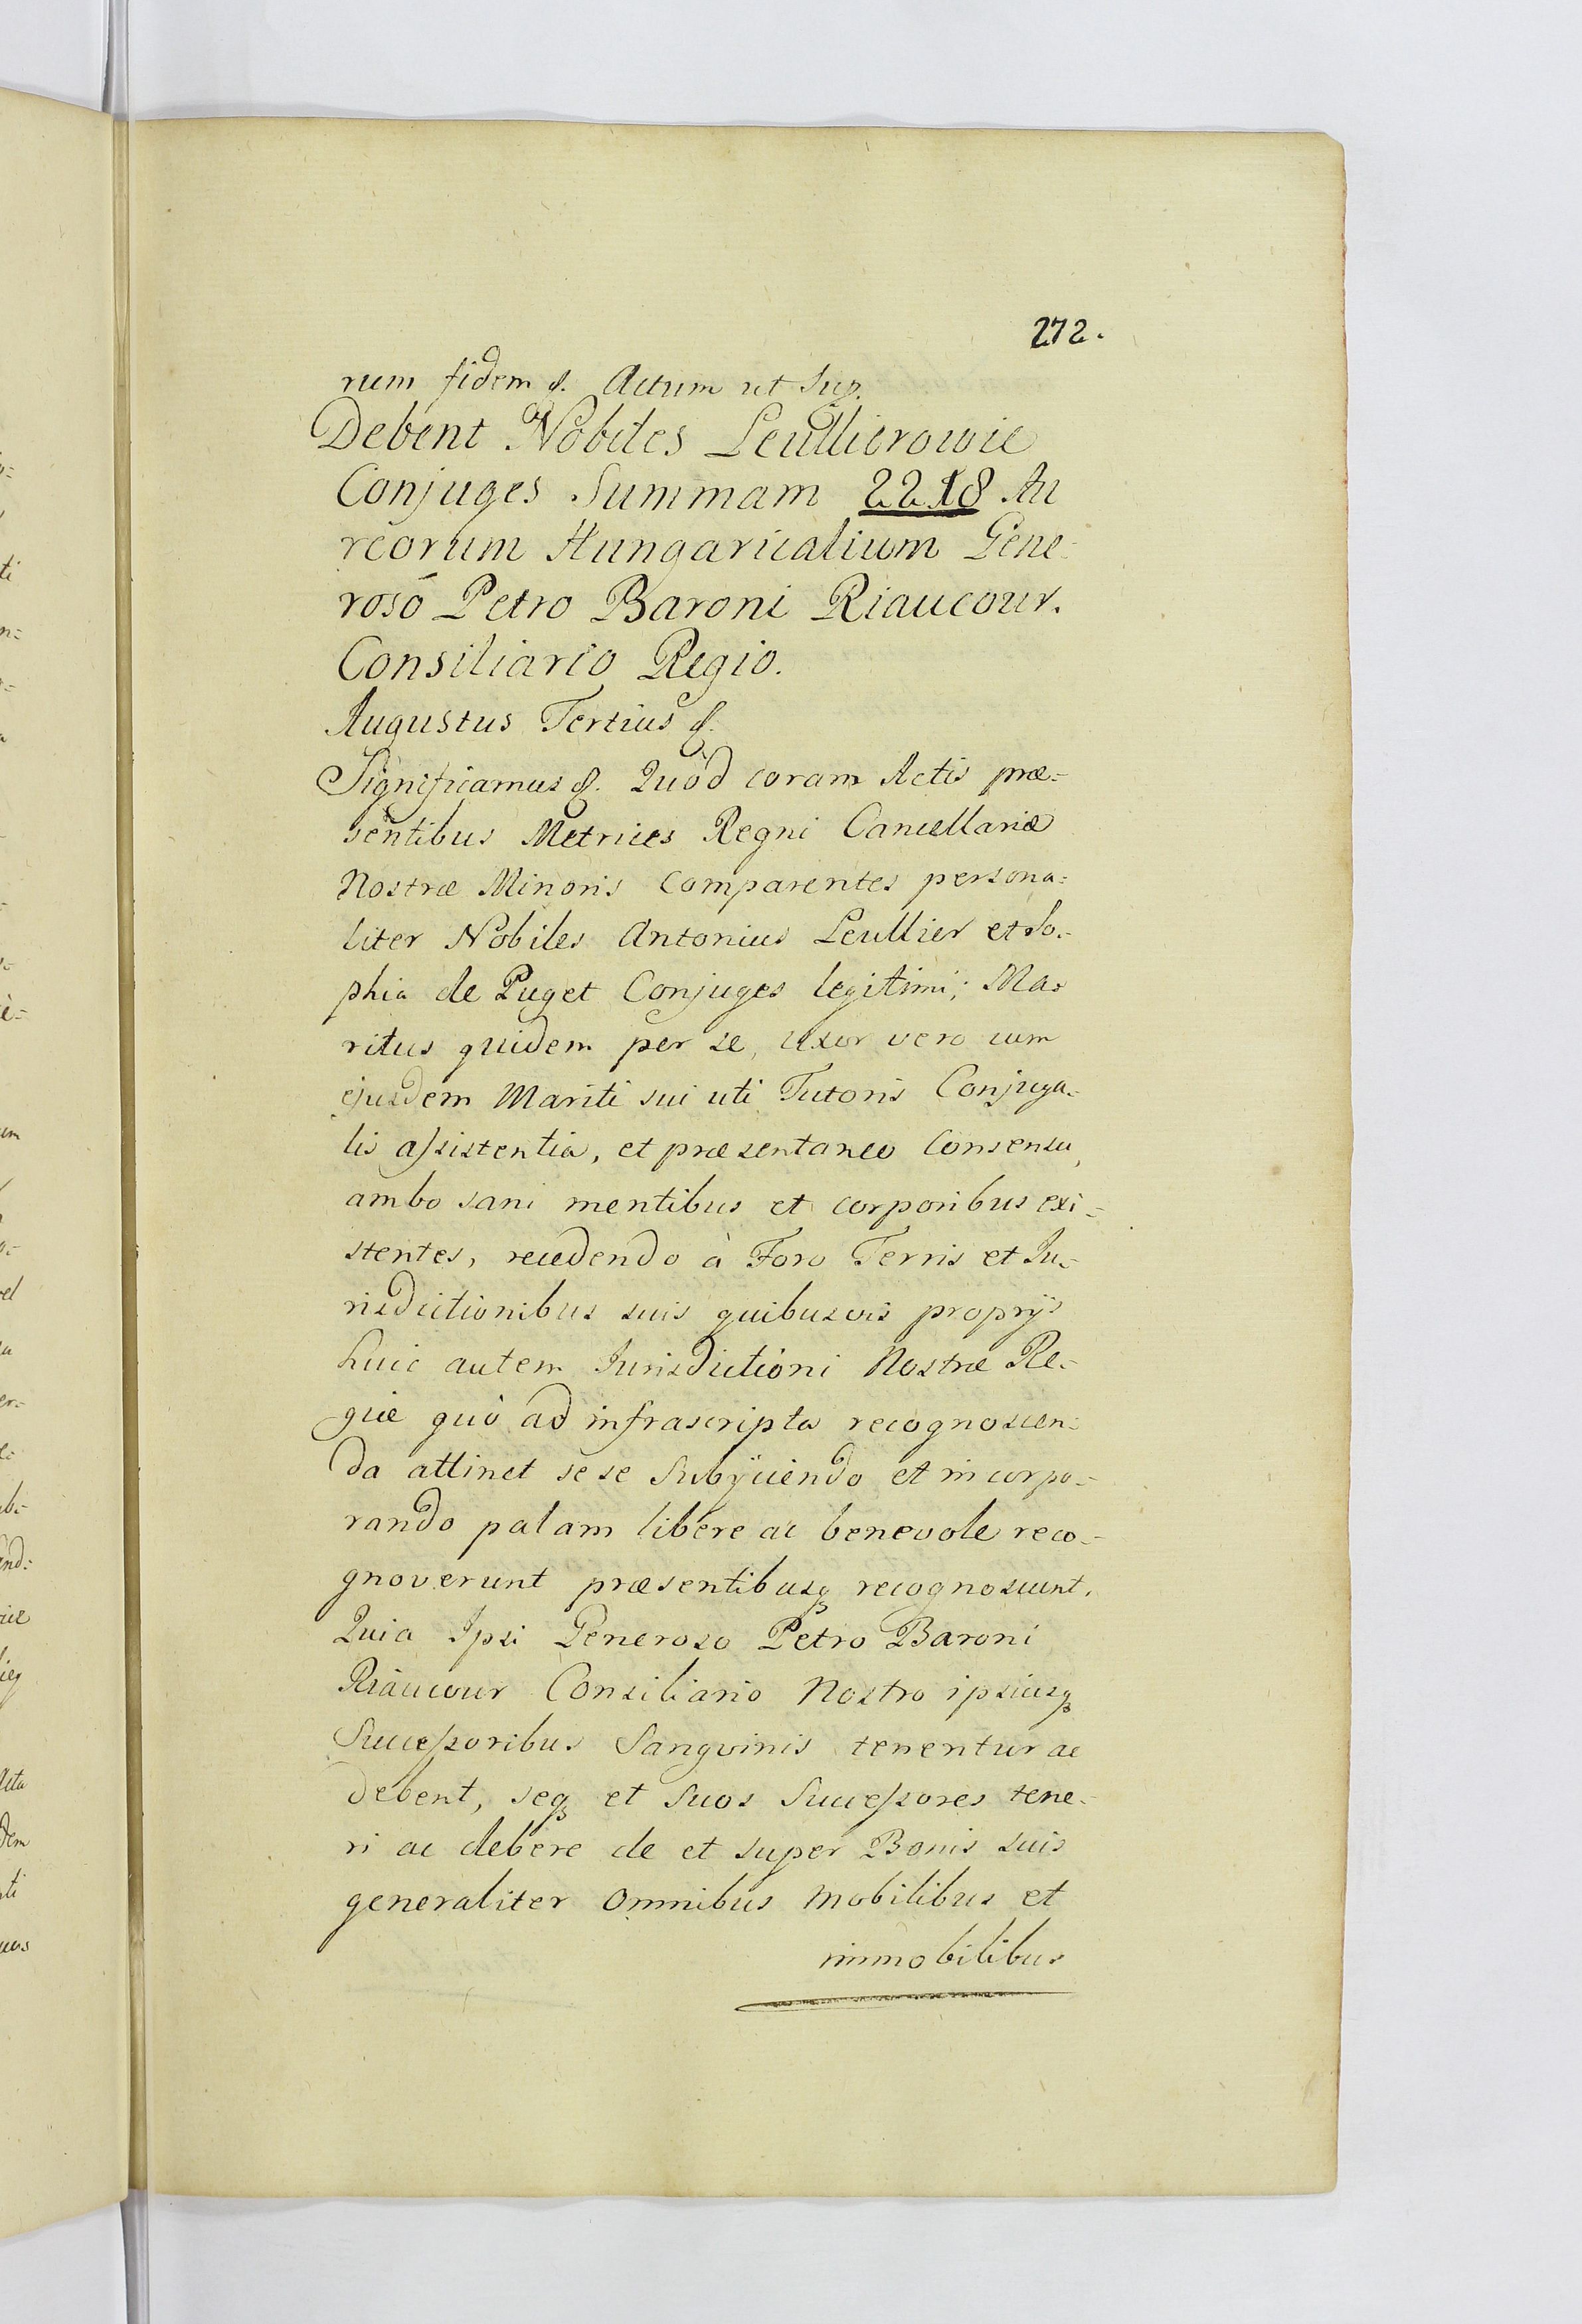 272.
rum fidem &. Actum ut Sup.
Debent Nobiles Leullierowie
Conjuges Summam 2218 Au
reorum Hungaricalium Gene=
roso Petro Baroni Riaucour.
Consiliario Regio.
Augustus Tertius &.
Significamus &. Quòd coram Actis præ=
sentibus Metrices Regni Cancellariæ
Nostræ Minoris Comparentes persona=
liter Nobiles Antonius Leullier et So=
phia de Puget Conjuges legitimi; Ma=
ritus quidem per se, uxor vero cum
ejusdem Mariti sui uti Tutoris Conjuga=
lis assistentia, et præsentaneo Consensu,
ambo sani mentibus et corporibus exi=
stentes, recedendo à Foro Terris et Ju=
risdictionibus suis quibusvis proprijs
huic autem Jurisdictioni Nostræ Re=
giæ quò ad infrascripta recognoscen=
da attinet sese Subijciendo et incorpo=
rando palam libere ac benevole reco=
gnoverunt præsentibusq recognoscunt.
Quia Ipsi Generoso Petro Baroni
Riaucour Consiliario Nostro ipsiusq
Successoribus Sangvinis tenentur ac
debent, seq et Suos Successores tene=
ri ac debere de et super Bonis suis
generaliter omnibus mobilibus et
immobilibus